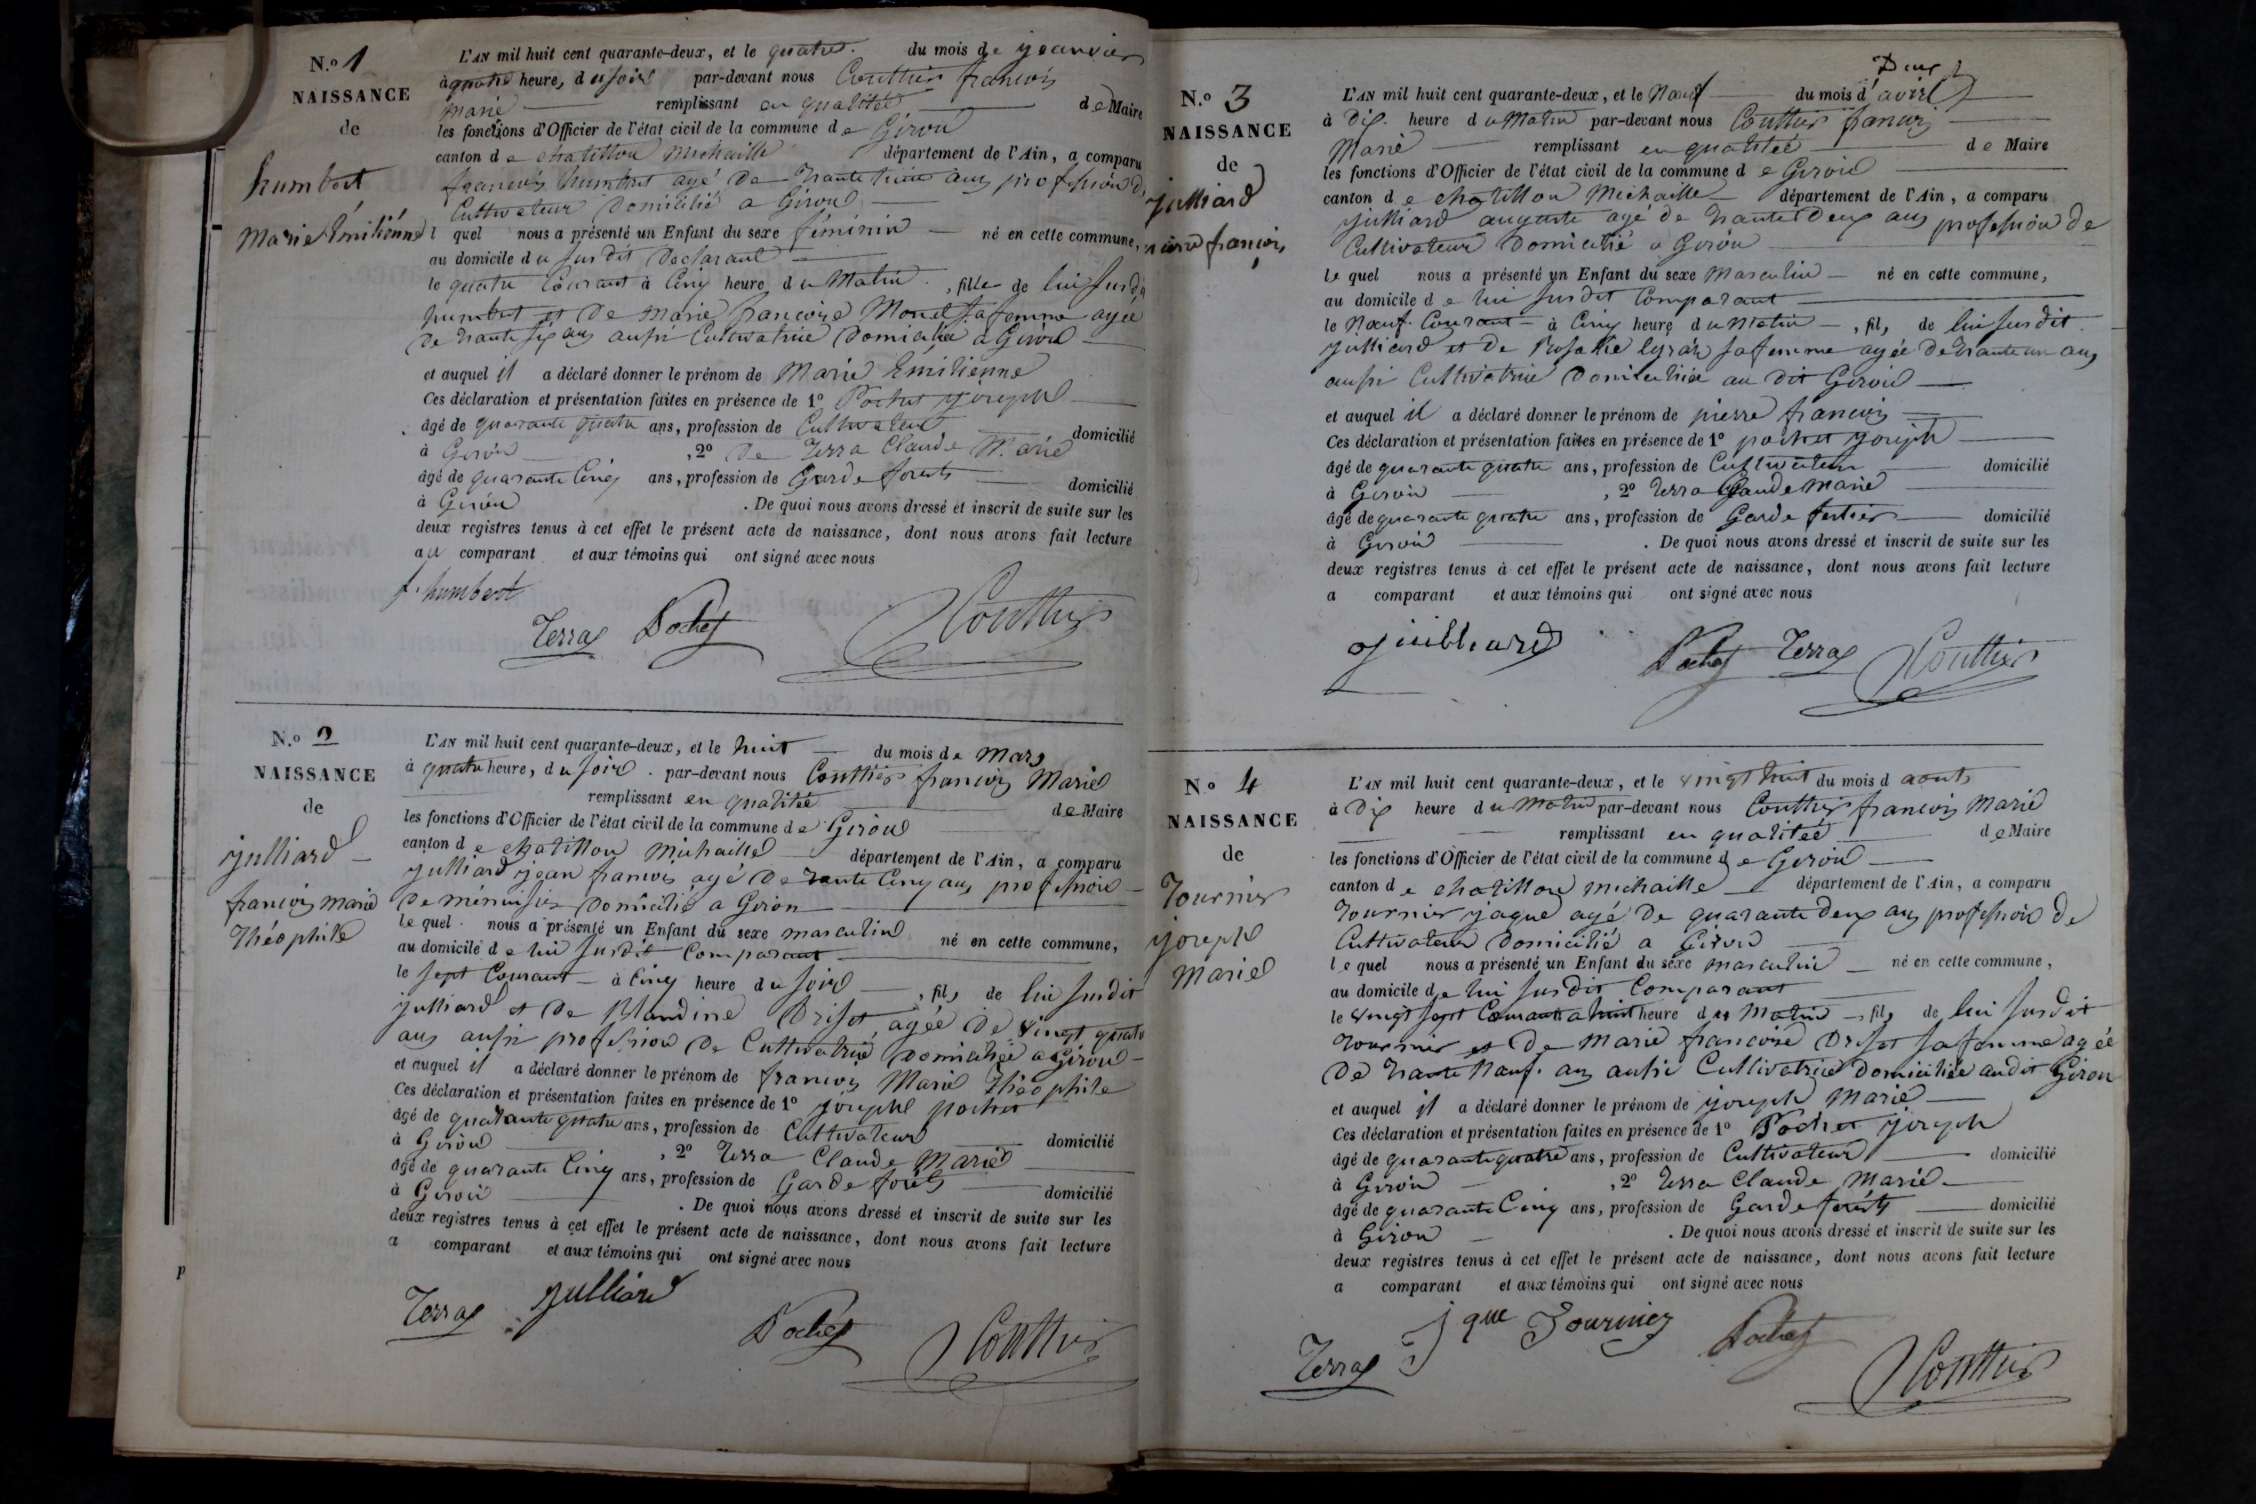 N.º 1
NAISSANCE
de
humbert
Marie Émiliénne
L'AN mil huit cent quarante-deux, et le quatre du mois de jeanvier
à quatre heure, du soir par-devant nous Coutthier francois
Marie remplissant en qualitée de Maire
les fonctions d'Officier de l'état civil de la commune de Giron
canton de chatillon Michaille département de l'Ain, a comparu
francois humbert agé de trante huit ans profession de
Cultivateur Domicilié a Giron
lequel nous a présenté un Enfant du sexe féminin né en cette commune,
au domicile du susdit Déclarant
le quatre Courant à Cinq heure du Matin, fille de lui susdit
humbert et de Marie francoise Monet sa femme agée
de trante six ans aussi Cultivatrice Domiciliée a Giron
et auquel il a déclaré donner le prénom de Marie Emilienne
Ces déclaration et présentation faites en présence de 1º Pochet joseph
âgé de quarante quatre ans, profession de Cultivateur domicilié
à Giron, 2º de Terra Claude Marie
âgé de quarante Cinq ans, profession de Garde forêts domicilié
à Giron. De quoi nous avons dressé et inscrit de suite sur les
deux registres tenus à cet effet le présent acte de naissance, dont nous avons fait lecture
au comparant et aux témoins qui ont signé avec nous
f. humbert
Terraz Pochet Coutthier
N.º 2
NAISSANCE
de
julliard
francois marie
Théophile
L'AN mil huit cent quarante-deux, et le huit du mois de Mars
à quatre heure, du soir par-devant nous Coutthier francois Marie
remplissant en qualitée de Maire
les fonctions d'Officier de l'état civil de la commune de Giron
canton de chatillon Michaille département de l'Ain, a comparu
julliard jean francois agé de trante Cinq ans profession
de ménuisier Domicilié a Giron
lequel nous a présenté un Enfant du sexe masculin né en cette commune,
au domicile de lui susdit Comparant
le sept Courant à Cinq heure du soir, fils de lui susdit
julliard et de Blandine Driset agée de vingt quatre
ans aussi profession de Cultivatrice Domiciliée a Giron
et auquel il a déclaré donner le prénom de francois Marie Théophile
Ces déclaration et présentation faites en présence de 1º joseph pochet
âgé de quarante quatre ans, profession de Cultivateur domicilié
à Giron, 2º Terra Claude Marie
âgé de quarante Cinq ans, profession de Garde forêts domicilié
à Giron. De quoi nous avons dressé et inscrit de suite sur les
deux registres tenus à cet effet le présent acte de naissance, dont nous avons fait lecture
a comparant et aux témoins qui ont signé avec nous
Terraz julliard
Pochet Coutthier
N.º 3
NAISSANCE
de
julliard
pierre francois
Deux
L'AN mil huit cent quarante-deux, et le Neuf du mois d'avril
à Dix heure du Matin par-devant nous Coutthier francois
Marie remplissant en qualitée de Maire
les fonctions d'Officier de l'état civil de la commune de Giron
canton de chatillon Michaille département de l'Ain, a comparu
julliard auguste agé de trante Deux ans profession de
Cultivateur Domicilié a Giron
lequel nous a présenté un Enfant du sexe Masculin né en cette commune,
au domicile de lui susdit Comparant
le Neuf Courant à Cinq heure du Matin, fils de lui susdit
julliard et de Rosalie sa femme agée de trante un ans
aussi Cultivatrice Domiciliée au dit Giron
et auquel il a déclaré donner le prénom de pierre francois
Ces déclaration et présentation faites en présence de 1º pochet joseph
âgé de quarante quatre ans, profession de Cultivateur domicilié
à Giron, 2º Terra Claude marie
âgé de quarante quatre ans, profession de Garde domicilié
à Giron. De quoi nous avons dressé et inscrit de suite sur les
deux registres tenus à cet effet le présent acte de naissance, dont nous avons fait lecture
a comparant et aux témoins qui ont signé avec nous
juilliard
Pochet Terraz Coutthier
Nº 4
NAISSANCE
de
Tournier
joseph
Marie
L'AN mil huit cent quarante-deux, et le vingt huit du mois d aout
à Dix heure du Matin par-devant nous Coutthier francois Marie
remplissant en qualitée de Maire
les fonctions d'Officier de l'état civil de la commune de Giron
canton de chatillon michaille département de l'Ain, a comparu
Tournier jaque agé de quarante deux ans profession de
Cultivateur Domicilié a Giron
lequel nous a présenté un Enfant du sexe masculin né en cette commune,
au domicile de lui susdit Comparant
le vingt sept Courant a huit heure du Matin, fils de lui susdit
Tournier et de Marie francoise Driset sa femme agée
de trante Neuf ans aussi Cultivatrice Domiciliée audit Giron
et auquel il a déclaré donner le prénom de joseph Marie
Ces déclaration et présentation faites en présence de 1º Pochet joseph
âgé de quarante quatre ans, profession de Cultivateur domicilié
à Giron, 2º Terra Claude Marie
âgé de quarante Cinq ans, profession de Garde forêts domicilié
à Giron. De quoi nous avons dressé et inscrit de suite sur les
deux registres tenus à cet effet le présent acte de naissance, dont nous avons fait lecture
a comparant et aux témoins qui ont signé avec nous
Terraz jque Tournier Pochet
Coutthier